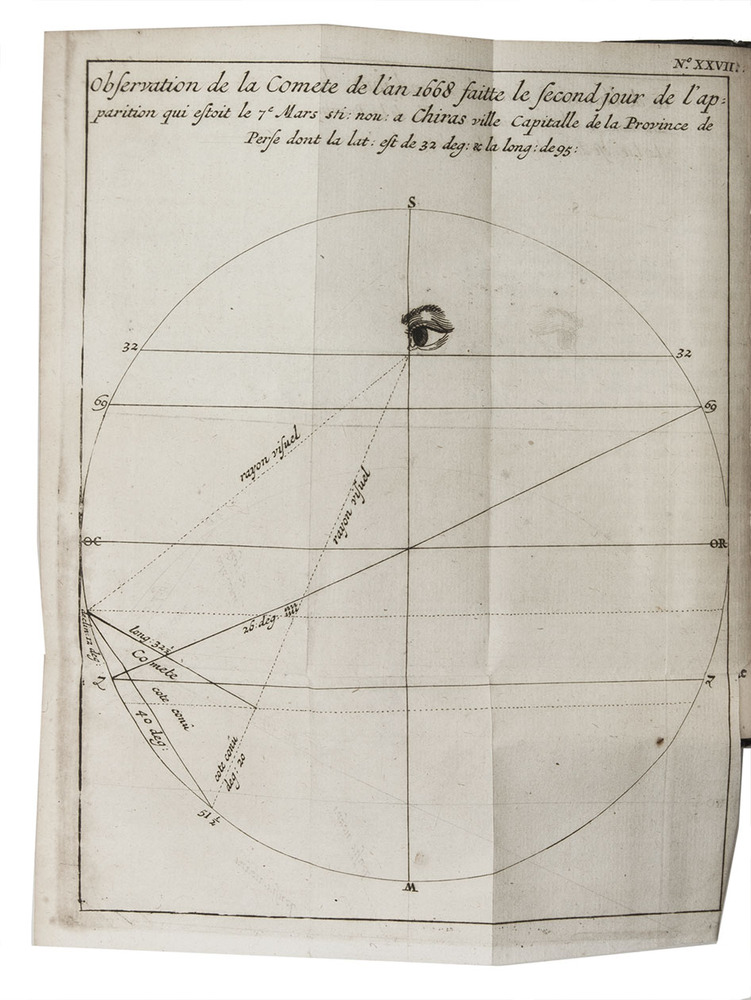 N.º XXVII.
Observation de la Comete de l'an 1668 faitte le second jour de l'ap=
parition qui estoit le 7.e Mars sti: nou: a Chiras ville Capitalle de la Province de
Perse dont la lat: est de 32 deg: & la long: de 95:
S
32
32
69
69
rayon visuel
rayon visuel
OC
OR
26 deg:
long: 32½
Comete
cote conū
40 deg:
cote conū
deg: 20
51½
M